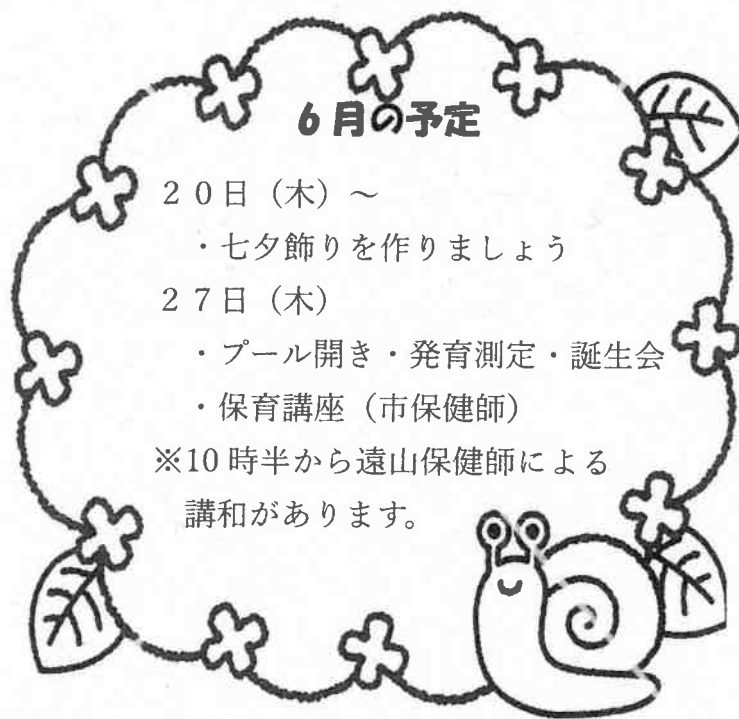 6月の予定
20日（木）～
・七夕飾りを作りましょう
27日（木）
・プール開き・発育測定・誕生会
・保育講座（市保健師）
※10時半から遠山保健師による
講和があります。